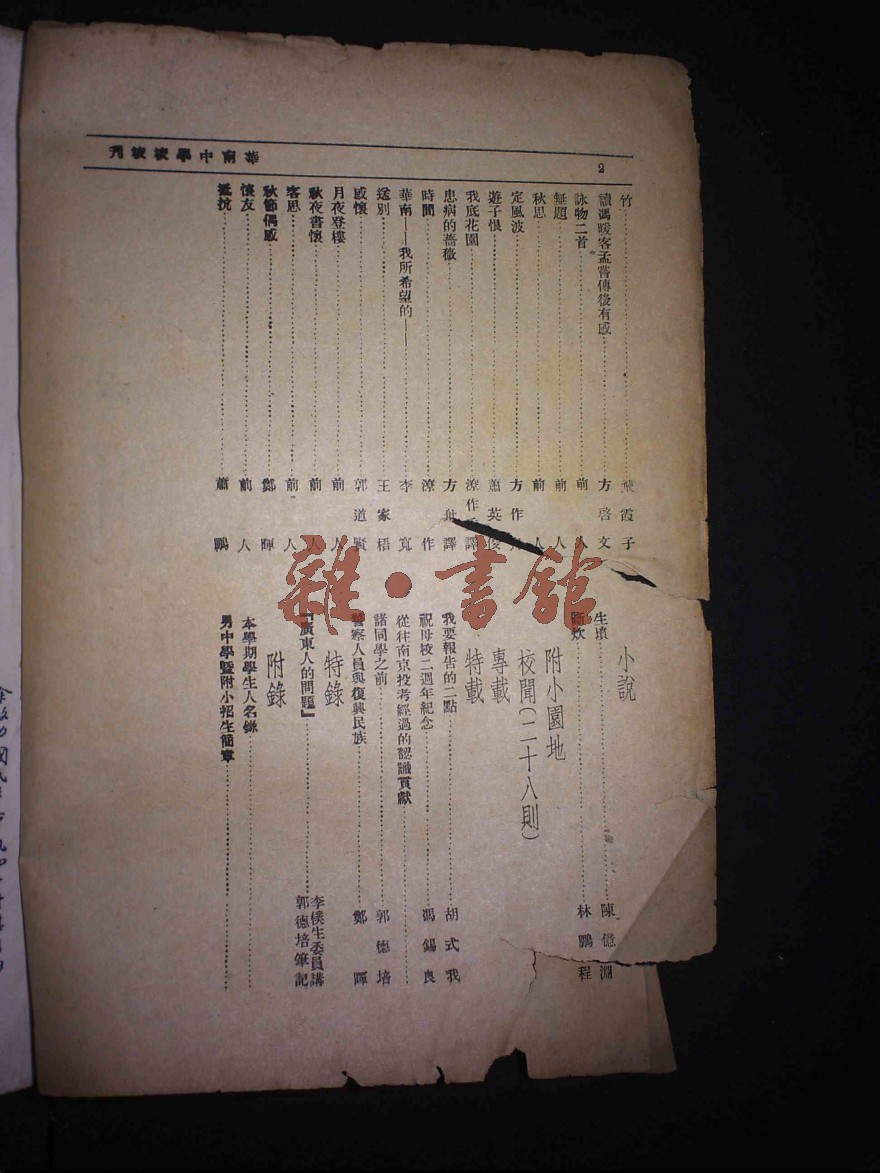 華南中學校校刊
2
竹……霞子
讀馮暖客孟嘗傳後有感……方啓文
詠物二首……前人
無題……前人
秋思……前人
定風波……方作
遊子恨……蕭英俊
我底花園……潦作譯
患病的薔薇……方舟譯
時間……潦作
華南——我所希望的——……李寬
送別……王家梧
感懷……郭道賢
月夜登樓……前人
秋夜書懷……前人
客思……前人
秋節偶感……鄭暉
懷友……前人
抵抗……蕭鵬
小說
生墳……陳億淵
斷炊……林鵬程
附小園地
校聞(二十八則)
專載
特載
我要報告的二點……胡式我
祝母校二週年紀念……馮錫良
從往南京投考經過的認識貢獻
諸同學之前……郭德培
警察人員與復興民族……鄭暉
特錄
『廣東人的問題』……李樸生委員講
郭德培筆記
附錄
本學期學生人名錄
男中學暨附小招生簡章
雜·書館